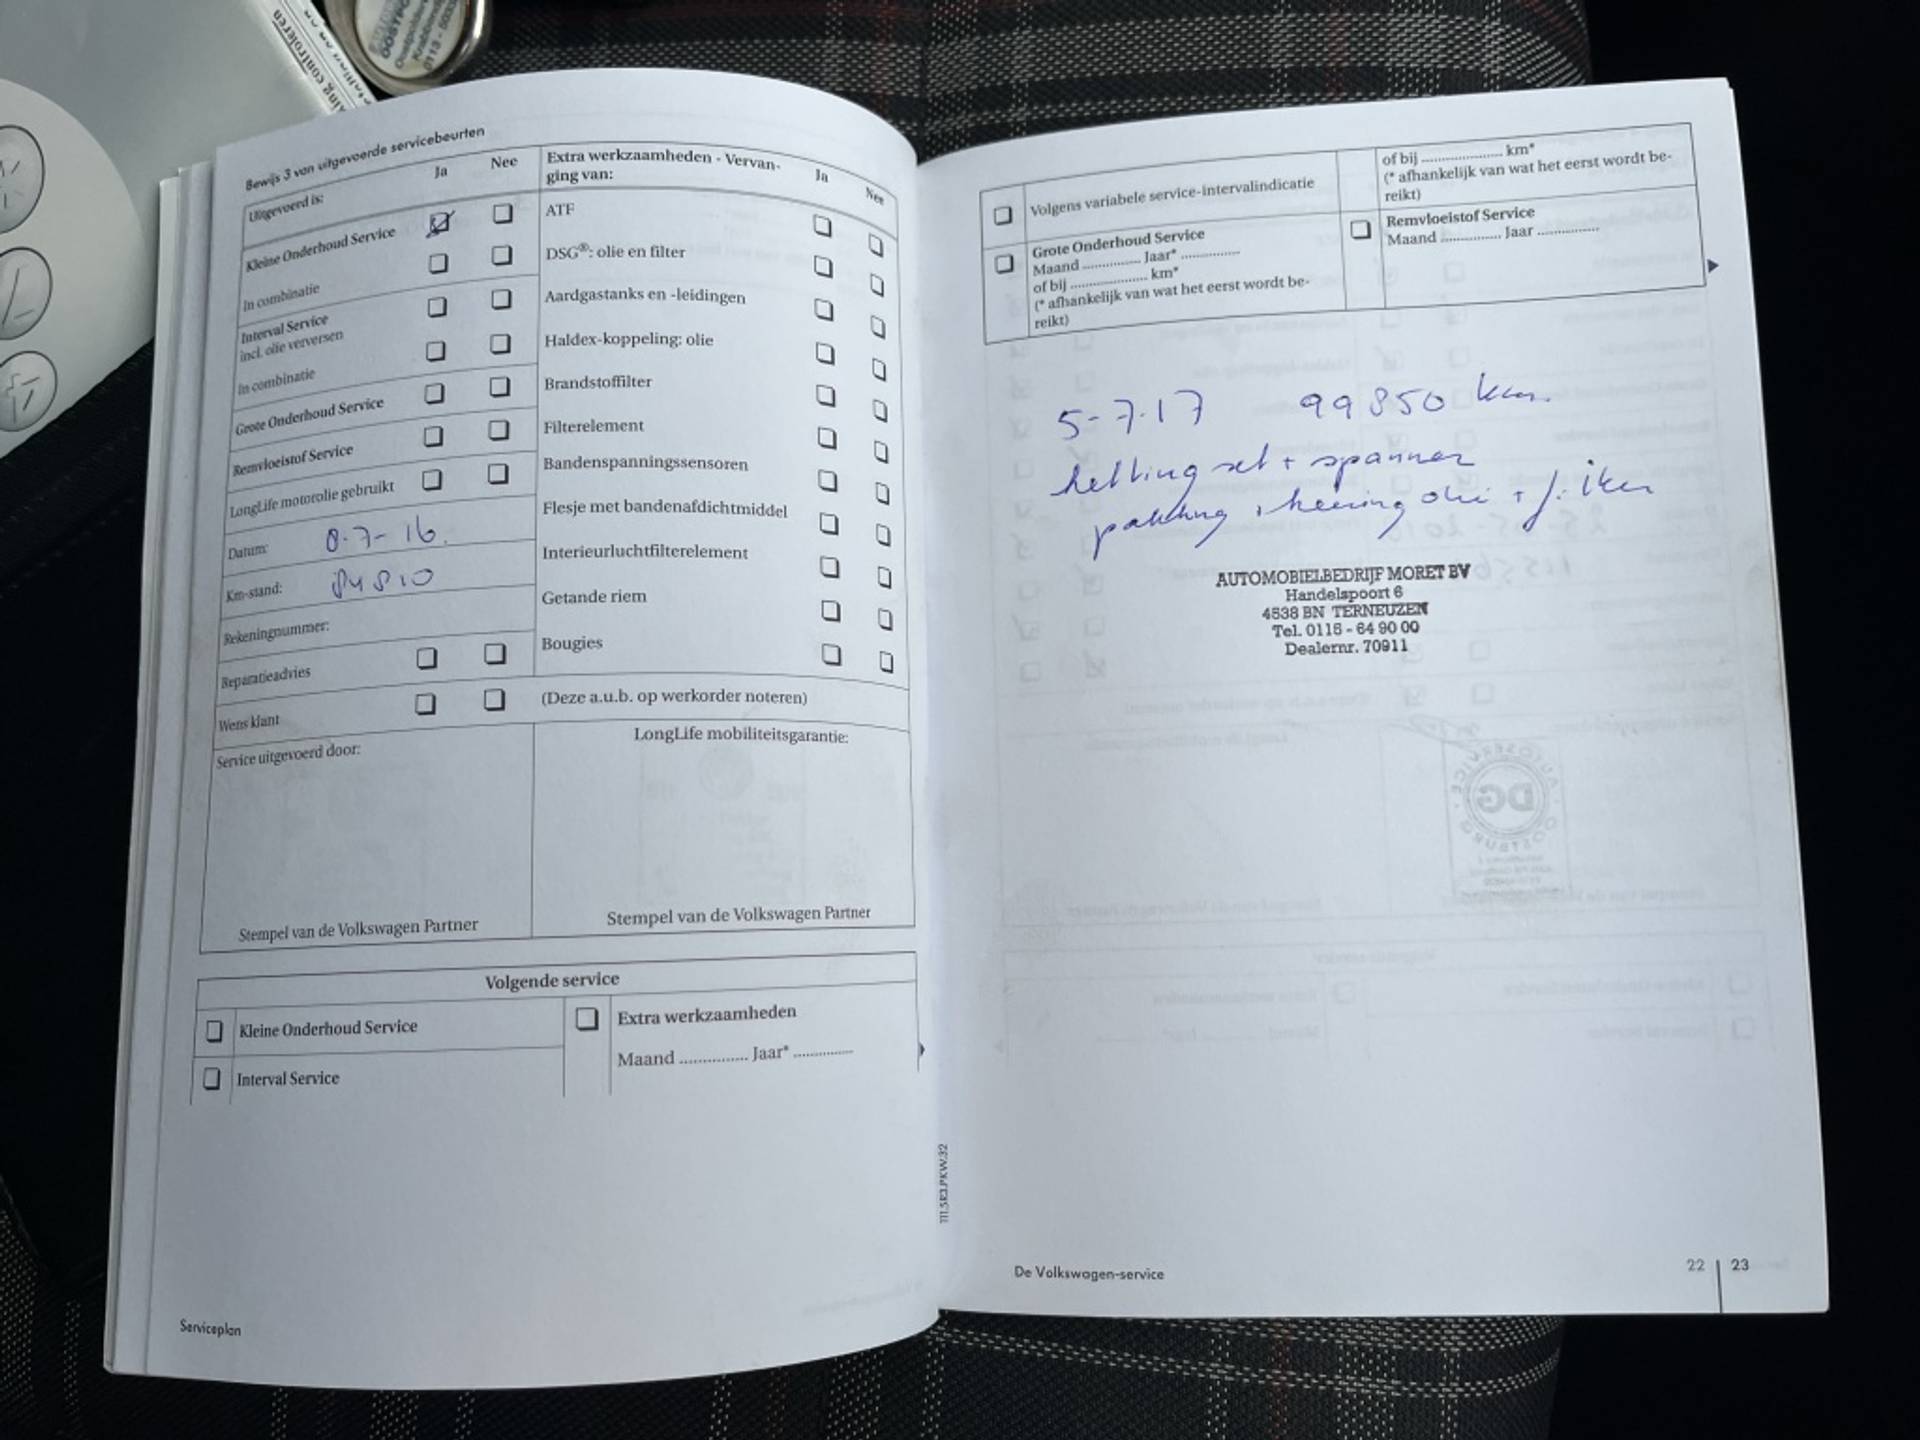 Bewijs 3 van uitgevoerde servicebeurten
Uitgevoerd is: Ja Nee
Kleine Onderhoud Service
In combinatie
Interval Service
incl. olie verversen
In combinatie
Grote Onderhoud Service
Remvloeistof Service
LongLife motorolie gebruikt
Datum: 8-7-16.
Km-stand: 84810
Rekeningnummer:
Reparatieadvies
Wens klant
Extra werkzaamheden - Vervan-
ging van: Ja Nee
ATF
DSG®: olie en filter
Aardgastanks en -leidingen
Haldex-koppeling: olie
Brandstoffilter
Filterelement
Bandenspanningssensoren
Flesje met bandenafdichtmiddel
Interieurluchtfilterelement
Getande riem
Bougies
(Deze a.u.b. op werkorder noteren)
Service uitgevoerd door:
Stempel van de Volkswagen Partner
LongLife mobiliteitsgarantie:
Stempel van de Volkswagen Partner
Volgende service
Kleine Onderhoud Service
Interval Service
Extra werkzaamheden
Maand ............... Jaar* ..............
Serviceplan
111.5R3.PKW.32
Volgens variabele service-intervalindicatie
Grote Onderhoud Service
Maand .............. Jaar* ..............
of bij .................. km*
(* afhankelijk van wat het eerst wordt be-
reikt)
of bij ................... km*
(* afhankelijk van wat het eerst wordt be-
reikt)
Remvloeistof Service
Maand .............. Jaar ..............
5-7-17 99850 km.
ketting set + spanner
pakking, keering olie + filter
AUTOMOBIELBEDRIJF MORET BV
Handelspoort 6
4538 BN TERNEUZEN
Tel. 0115 - 64 90 00
Dealernr. 70911
De Volkswagen-service
22 23